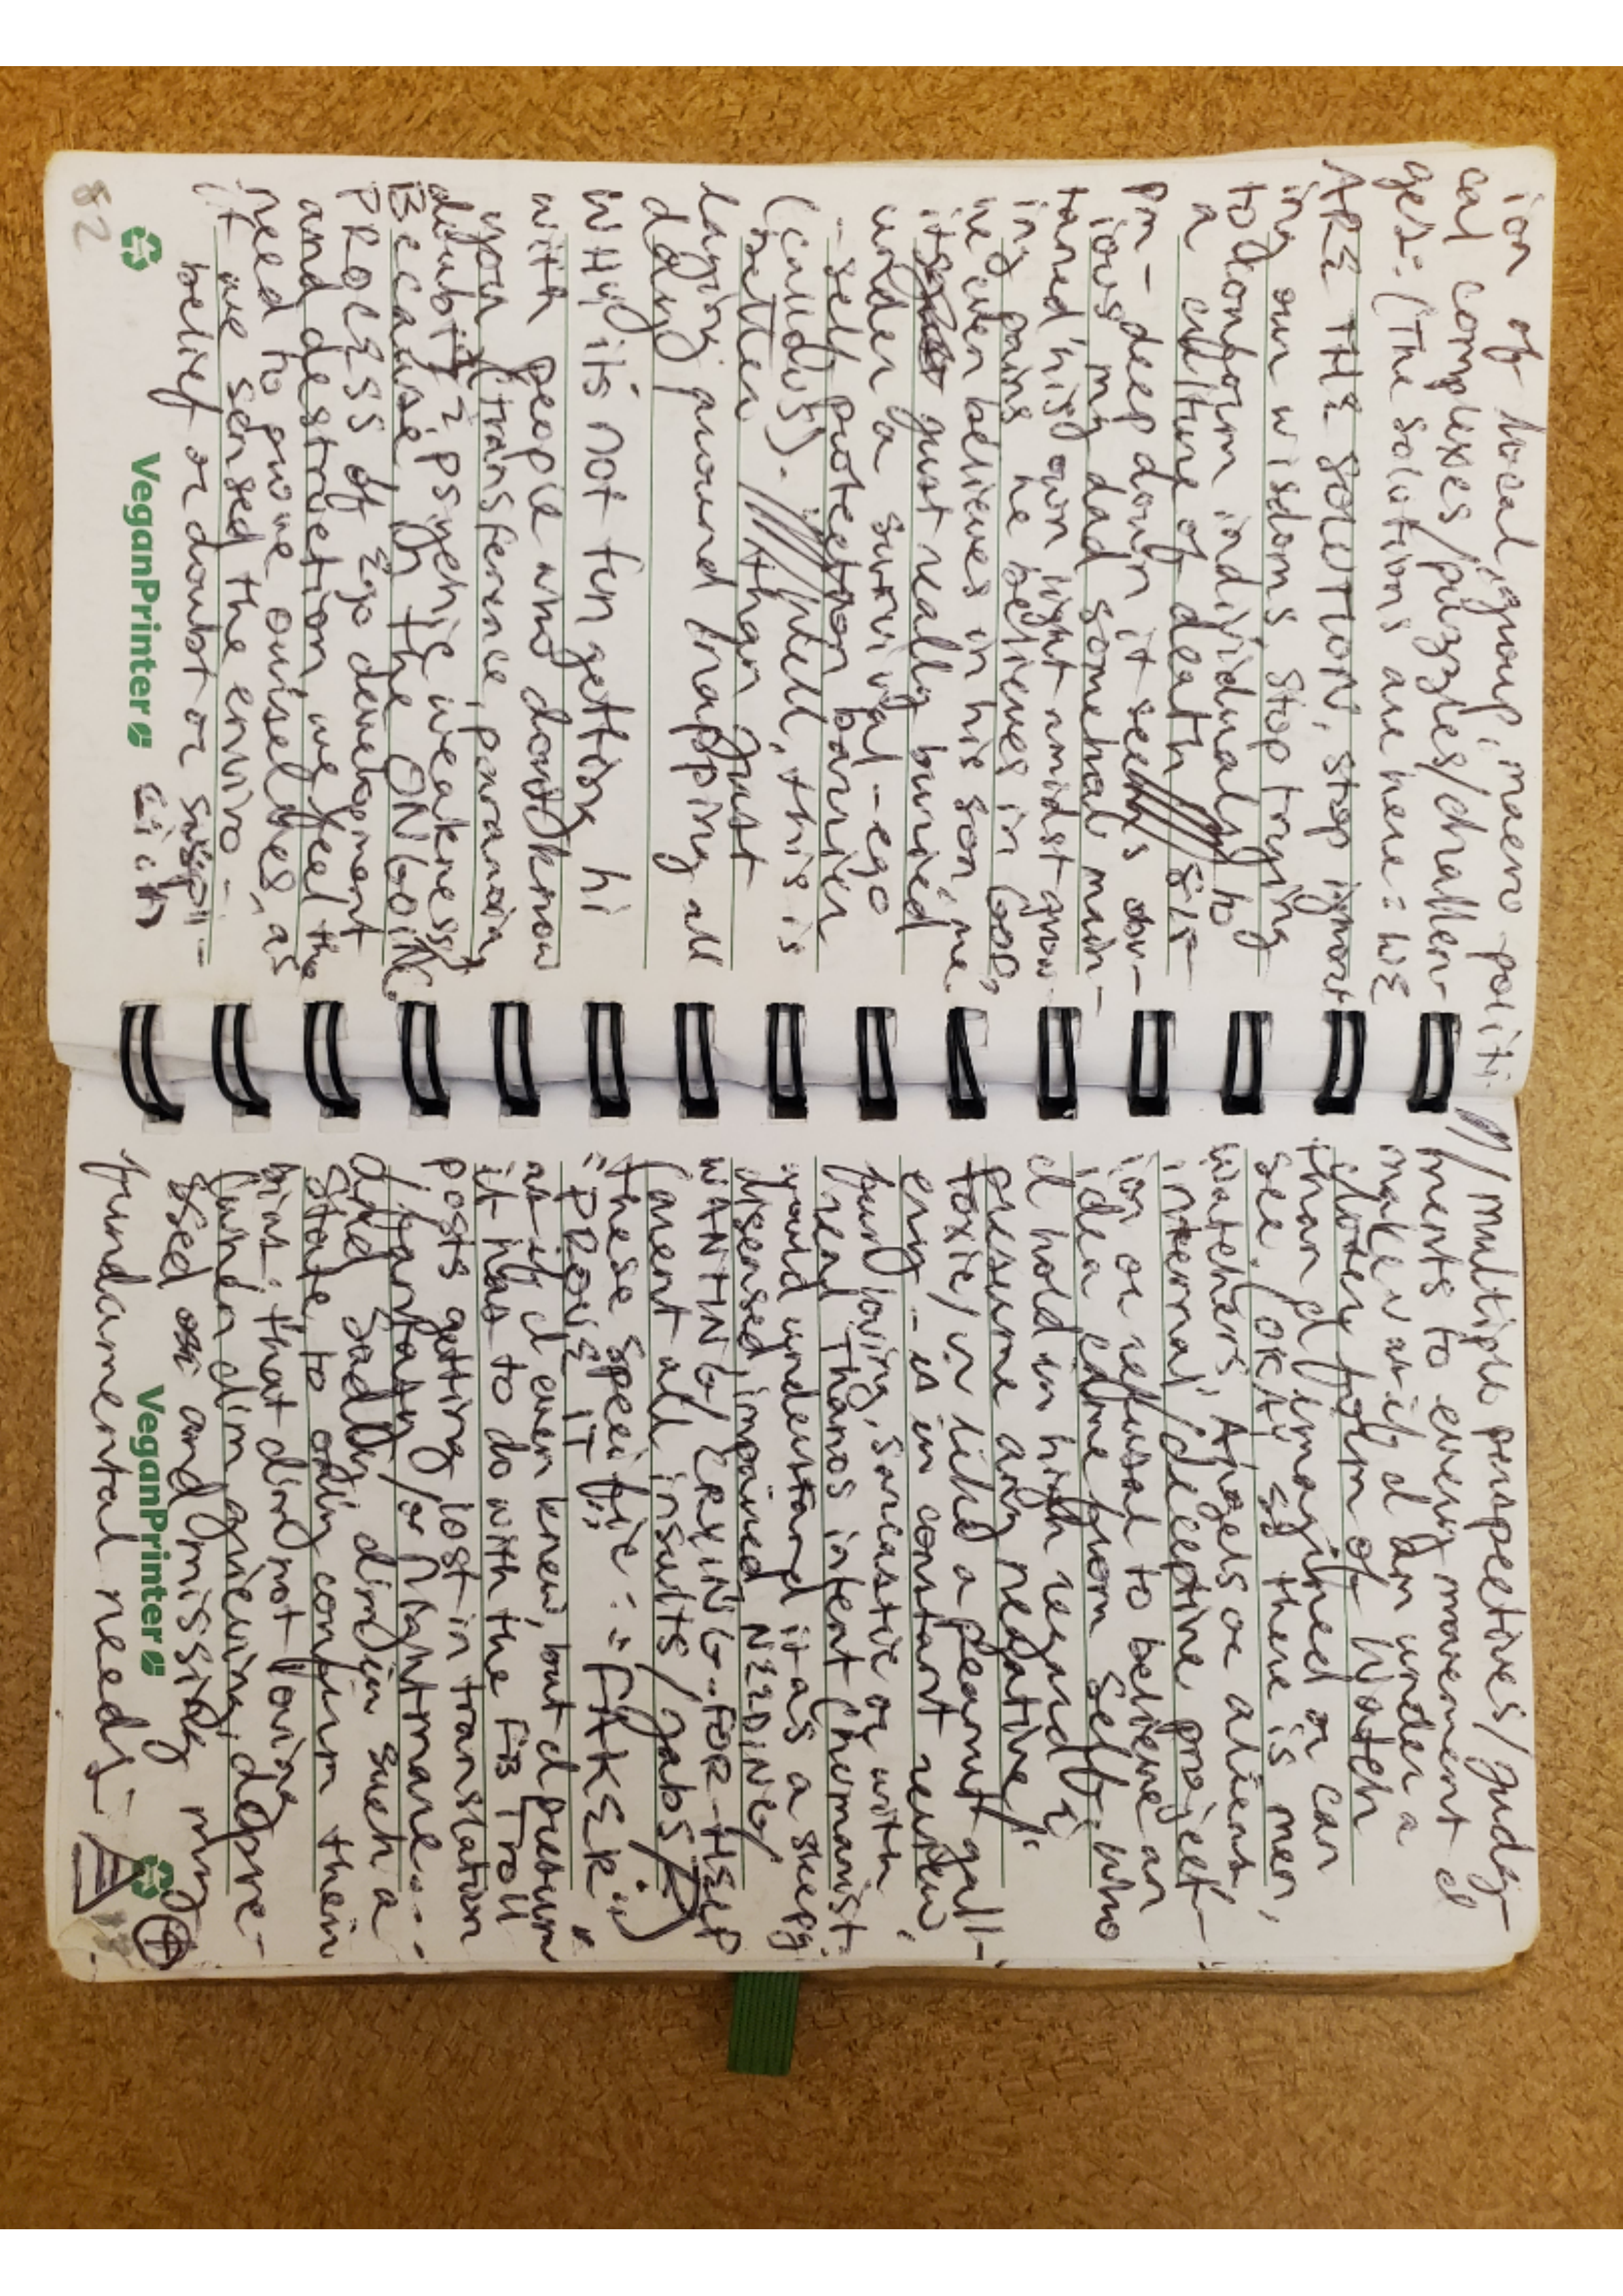 ion of local, group, macro politi-
cal complexes/puzzles/challen-
ges: (The solutions are here: WE
ARE THE SOLUTION, stop ignor-
ing our wisdoms, stop trying
to conform individuals to
a culture of death
pm - deep down it seems obv-
ious my dad somehow main-
tained his own light amidst grow-
ing pains he believes in GOD,
he even believes in his son, me.
it's just really buried
under a survival-ego
-self protection barrier
(callus). well, this is
better than just
laying around napping all
day
Why it's not fun getting hi
with people who don't know
you (transference, paranoia,
doubt) = psychic weakness)
Because in the ONGOING
PROCESS of Ego development
and destruction we feel the
need to prove ourselves, as
if we sensed the enviro-
belief or doubt or suspi-
cion
82
VeganPrinter
// multiple perspectives/judg-
ments to every movement I
make v as if I am under a
closer form of Watch
than I imagined or can
see. (OKAY so there is men,
watchers, Angels or aliens
internal/deceptive project-
ion or refusal to believe an
idea came from self). who
I hold in high regard i
presume any negative/
toxic/ like a peanut gall-
ery - is in constant review,
fun loving, sarcastic or with
Thanos intent (humanist.
would understand it as a sheep
diseased, impaired, NEEDING/
WANTING/ERXING-FOR-HSLP
(arent all insults/jabs/)
these specific: "FAKER"
"PROVE IT"
as if I even knew, but I presum
it has to do with the FB Troll
posts getting lost in translation
/fantasy/or Nightmare...
and sadly dim in such a
state to only confirm their
bias: that dim not loving
(when dim grieving, depre-
ssed and missing my
fundamental needs-
VeganPrinter